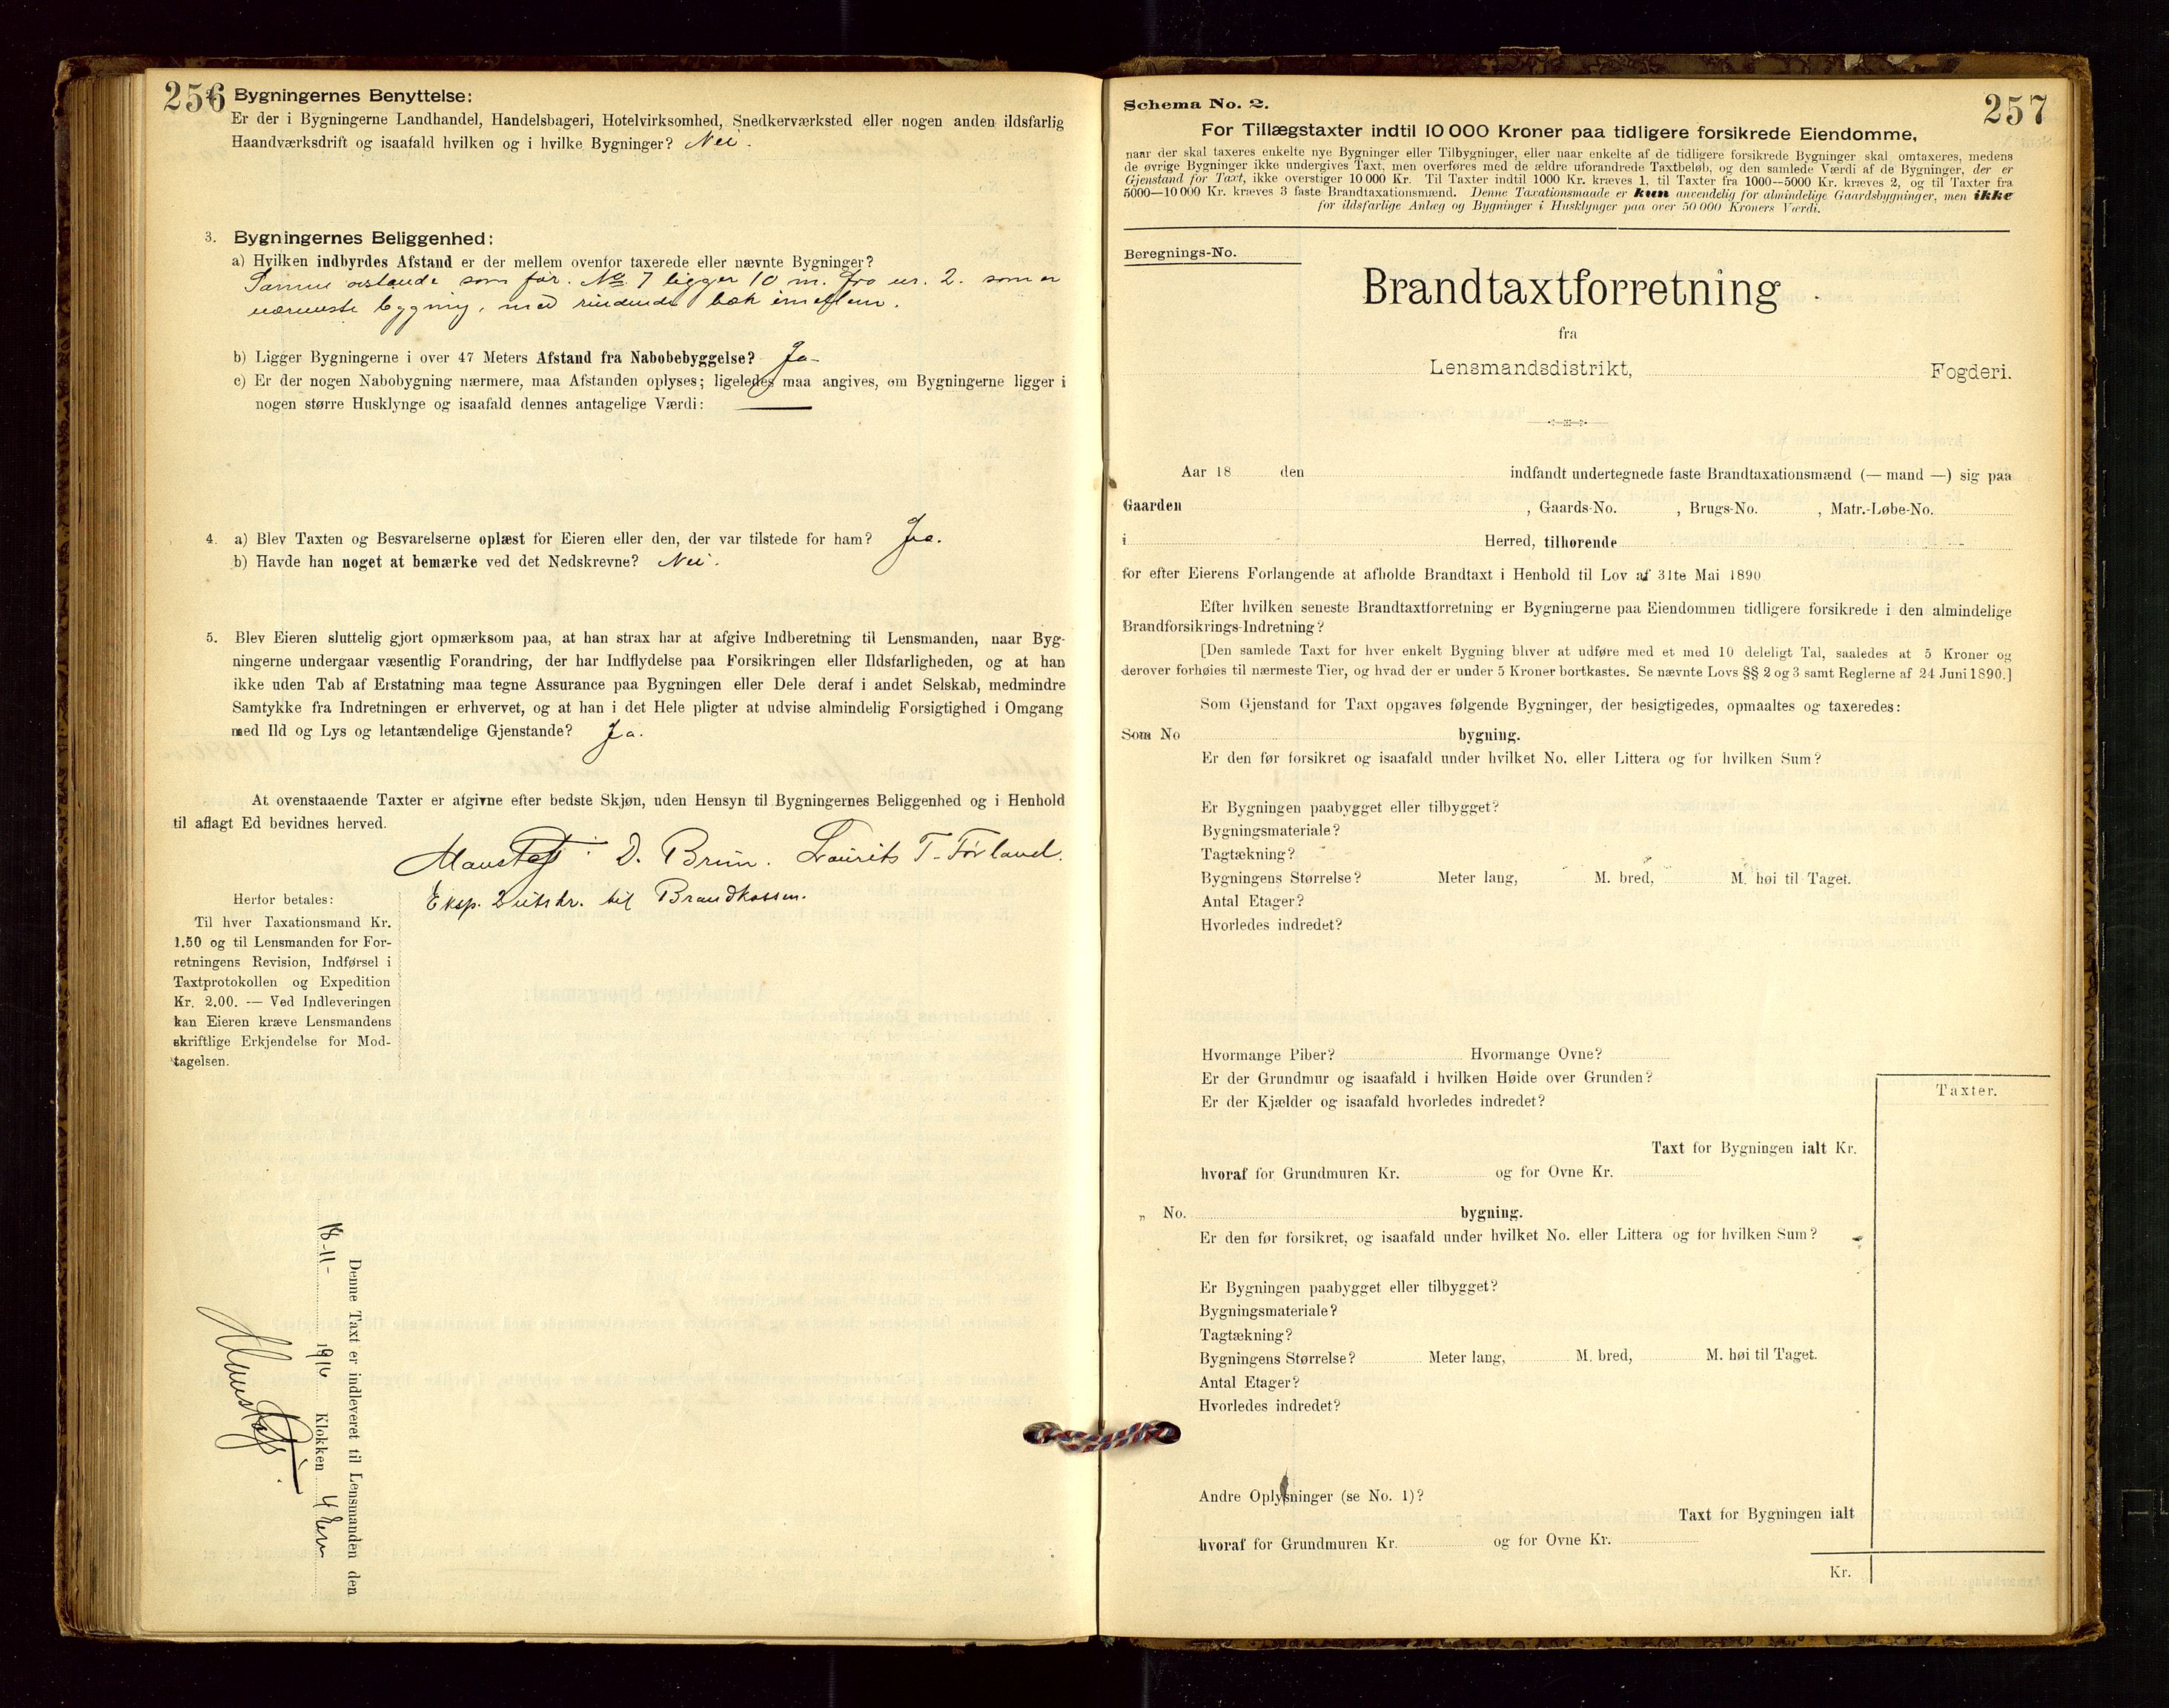 256
Bygningernes Benyttelse:
Er der i Bygningerne Landhandel, Handelsbageri, Hotelvirksomhed, Snedkerværksted eller nogen anden ildsfarlig
Haandværksdrift og isaafald hvilken og i hvilke Bygninger? Nei.
3. Bygningernes Beliggenhed:
a) Hvilken indbyrdes Afstand er der mellem ovenfor taxerede eller nævnte Bygninger?
Samme avstande som før. No 7 ligger 10 m. fra nr. 2. som er
nærmeste bygning, med rindende bæk imellem.
b) Ligger Bygningerne i over 47 Meters Afstand fra Nabobebyggelse? Ja
c) Er der nogen Nabobygning nærmere, maa Afstanden oplyses; ligeledes maa angives, om Bygningerne ligger i
nogen større Husklynge og isaafald dennes antagelige Værdi:
4. a) Blev Taxten og Besvarelserne oplæst for Eieren eller den, der var tilstede for ham? Ja.
b) Havde han noget at bemærke ved det Nedskrevne? Nei.
5. Blev Eieren sluttelig gjort opmærksom paa, at han strax har at afgive Indberetning til Lensmanden, naar Byg-
ningerne undergaar væsentlig Forandring, der har Indflydelse paa Forsikringen eller Ildsfarligheden, og at han
ikke uden Tab af Erstatning maa tegne Assurance paa Bygningen eller Dele deraf i andet Selskab, medmindre
Samtykke fra Indretningen er erhvervet, og at han i det Hele pligter at udvise almindelig Forsigtighed i Omgang
med Ild og Lys og letantændelige Gjenstande? Ja.
At ovenstaaende Taxter er afgivne efter bedste Skjøn, uden Hensyn til Bygningernes Beliggenhed og i Henhold
til aflagt Ed bevidnes herved.
D. Brun. Laurits T. Førland.
Eksp. Zutskr. til Brandkassen.
Herfor betales:
Til hver Taxationsmand Kr.
1.50 og til Lensmanden for For-
retningens Revision, Indførsel i
Taxtprotokollen og Expedition
Kr. 2.00. — Ved Indleveringen
kan Eieren kræve Lensmandens
skriftlige Erkjendelse for Mod-
tagelsen.
Denne Taxt er indleveret til Lensmanden den
18-11- 1916 Klokken 4 Em
257
Schema No. 2.
For Tillægstaxter indtil 10 000 Kroner paa tidligere forsikrede Eiendomme,
naar der skal taxeres enkelte nye Bygninger eller Tilbygninger, eller naar enkelte af de tidligere forsikrede Bygninger skal omtaxeres, medens
de øvrige Bygninger ikke undergives Taxt, men overføres med de ældre uforandrede Taxtbeløb, og den samlede Værdi af de Bygninger, der er
Gjenstand for Taxt, ikke overstiger 10 000 Kr. Til Taxter indtil 1000 Kr. kræves 1, til Taxter fra 1000—5000 Kr. kræves 2, og til Taxter fra
5000—10 000 Kr. kræves 3 faste Brandtaxationsmænd. Denne Taxationsmaade er kun anvendelig for almindelige Gaardsbygninger, men ikke
for ildsfarlige Anlæg og Bygninger i Husklynger paa over 50 000 Kroners Værdi.
Beregnings-No.
Brandtaxtforretning
fra
Lensmandsdistrikt, Fogderi.
Aar 18 den indfandt undertegnede faste Brandtaxationsmænd (— mand —) sig paa
Gaarden , Gaards-No. , Brugs-No. , Matr.-Løbe-No.
i Herred, tilhørende
for efter Eierens Forlangende at afholde Brandtaxt i Henhold til Lov af 31te Mai 1890
Efter hvilken seneste Brandtaxtforretning er Bygningerne paa Eiendommen tidligere forsikrede i den almindelige
Brandforsikrings-Indretning?
[Den samlede Taxt for hver enkelt Bygning bliver at udføre med et med 10 deleligt Tal, saaledes at 5 Kroner og
derover forhøies til nærmeste Tier, og hvad der er under 5 Kroner bortkastes. Se nævnte Lovs §§ 2 og 3 samt Reglerne af 24 Juni 1890.]
Som Gjenstand for Taxt opgaves følgende Bygninger, der besigtigedes, opmaaltes og taxeredes:
Som No bygning.
Er den før forsikret og isaafald under hvilket No. eller Littera og for hvilken Sum?
Er Bygningen paabygget eller tilbygget?
Bygningsmateriale?
Tagtækning?
Bygningens Størrelse? Meter lang, M. bred, M. høi til Taget.
Antal Etager?
Hvorledes indredet?
Hvormange Piber? Hvormange Ovne?
Er der Grundmur og isaafald i hvilken Høide over Grunden?
Er der Kjælder og isaafald hvorledes indredet?
Taxter.
Taxt for Bygningen ialt Kr.
hvoraf for Grundmuren Kr. og for Ovne Kr.
„ No. bygning.
Er den før forsikret, og isaafald under hvilket No. eller Littera og for hvilken Sum?
Er Bygningen paabygget eller tilbygget?
Bygningsmateriale?
Tagtækning?
Bygningens Størrelse? Meter lang, M. bred, M. høi til Taget.
Antal Etager?
Hvorledes indredet?
Andre Oplysninger (se No. 1)?
Taxt for Bygningen ialt
hvoraf for Grundmuren Kr. og for Ovne Kr.
Kr.